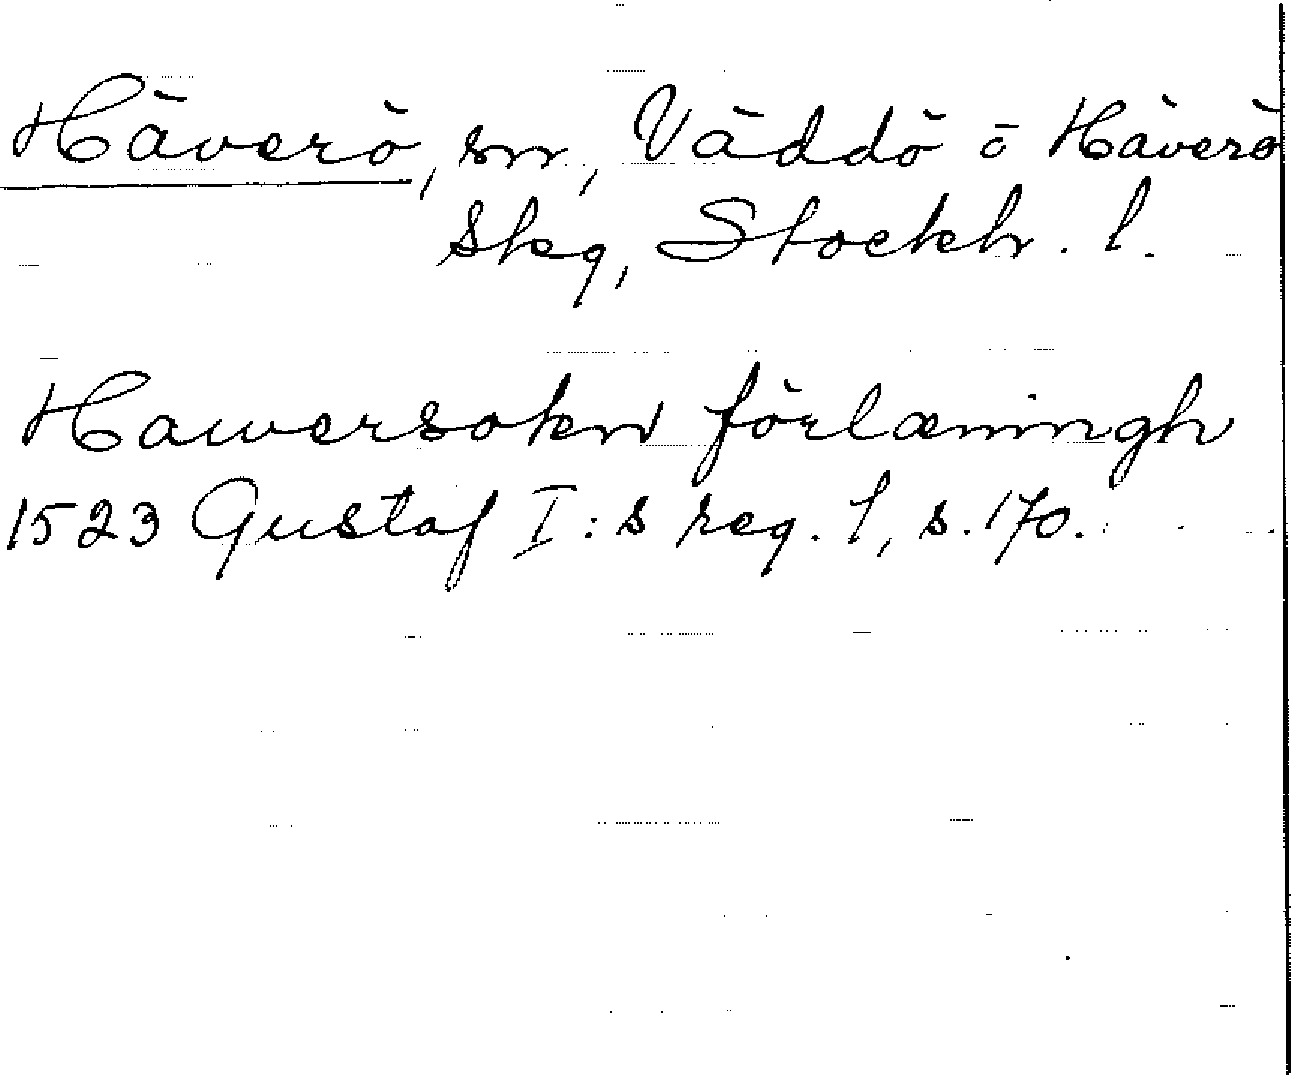 Häverö, sn, Väddö o Häverö
skg, Stockh. l.
Hawersokn förlæningh
1523 Gustaf I:s reg. 1, s. 170.